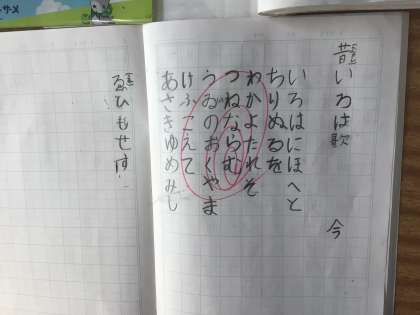 龍
いろは歌
今
いろはにほへと
ちりぬるを
わかよたれそ
つねならむ
うゐのおくやま
けふこえて
あさきゆめみし
ゑひもせす